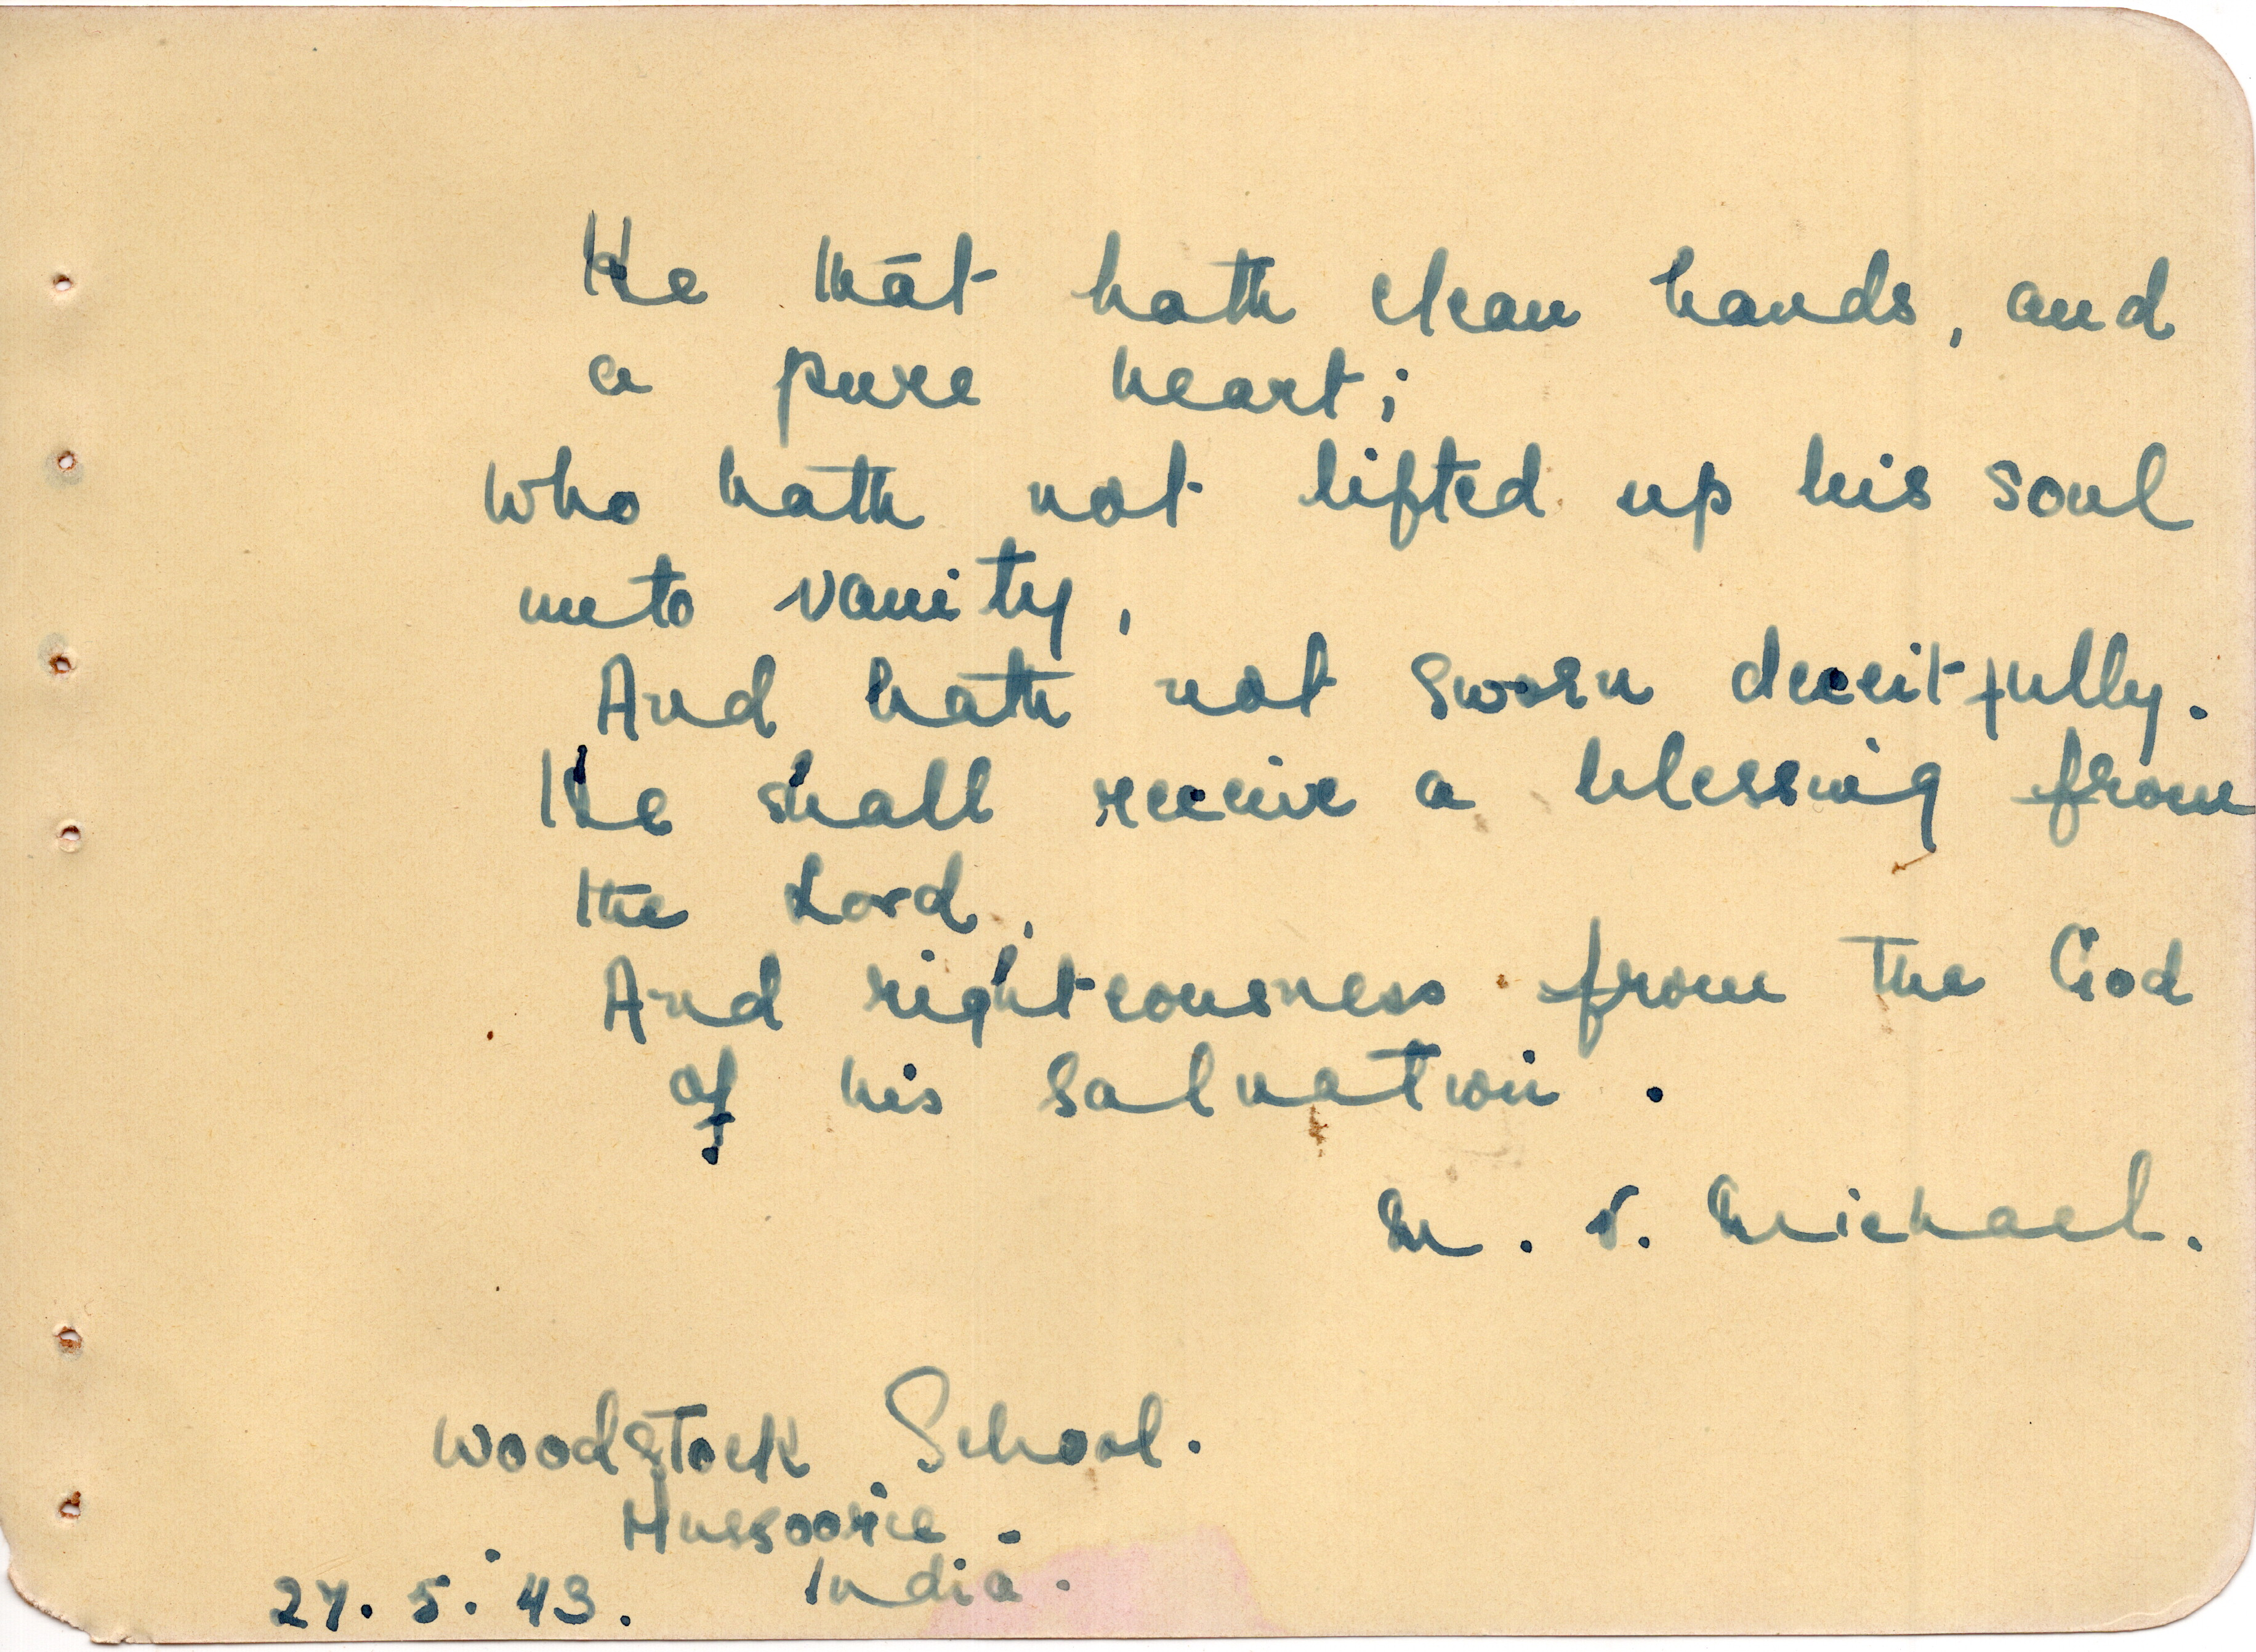 He that hath clean hands, and
a pure heart;
who hath not lifted up his soul
unto vanity,
And hath not sworn deceitfully.
He shall receive a blessing from
the Lord,
And righteousness from the God
of his salvation.
M. V. Michael.
Woodstock School.
Mussoorie.
India.
27. 5. 43.